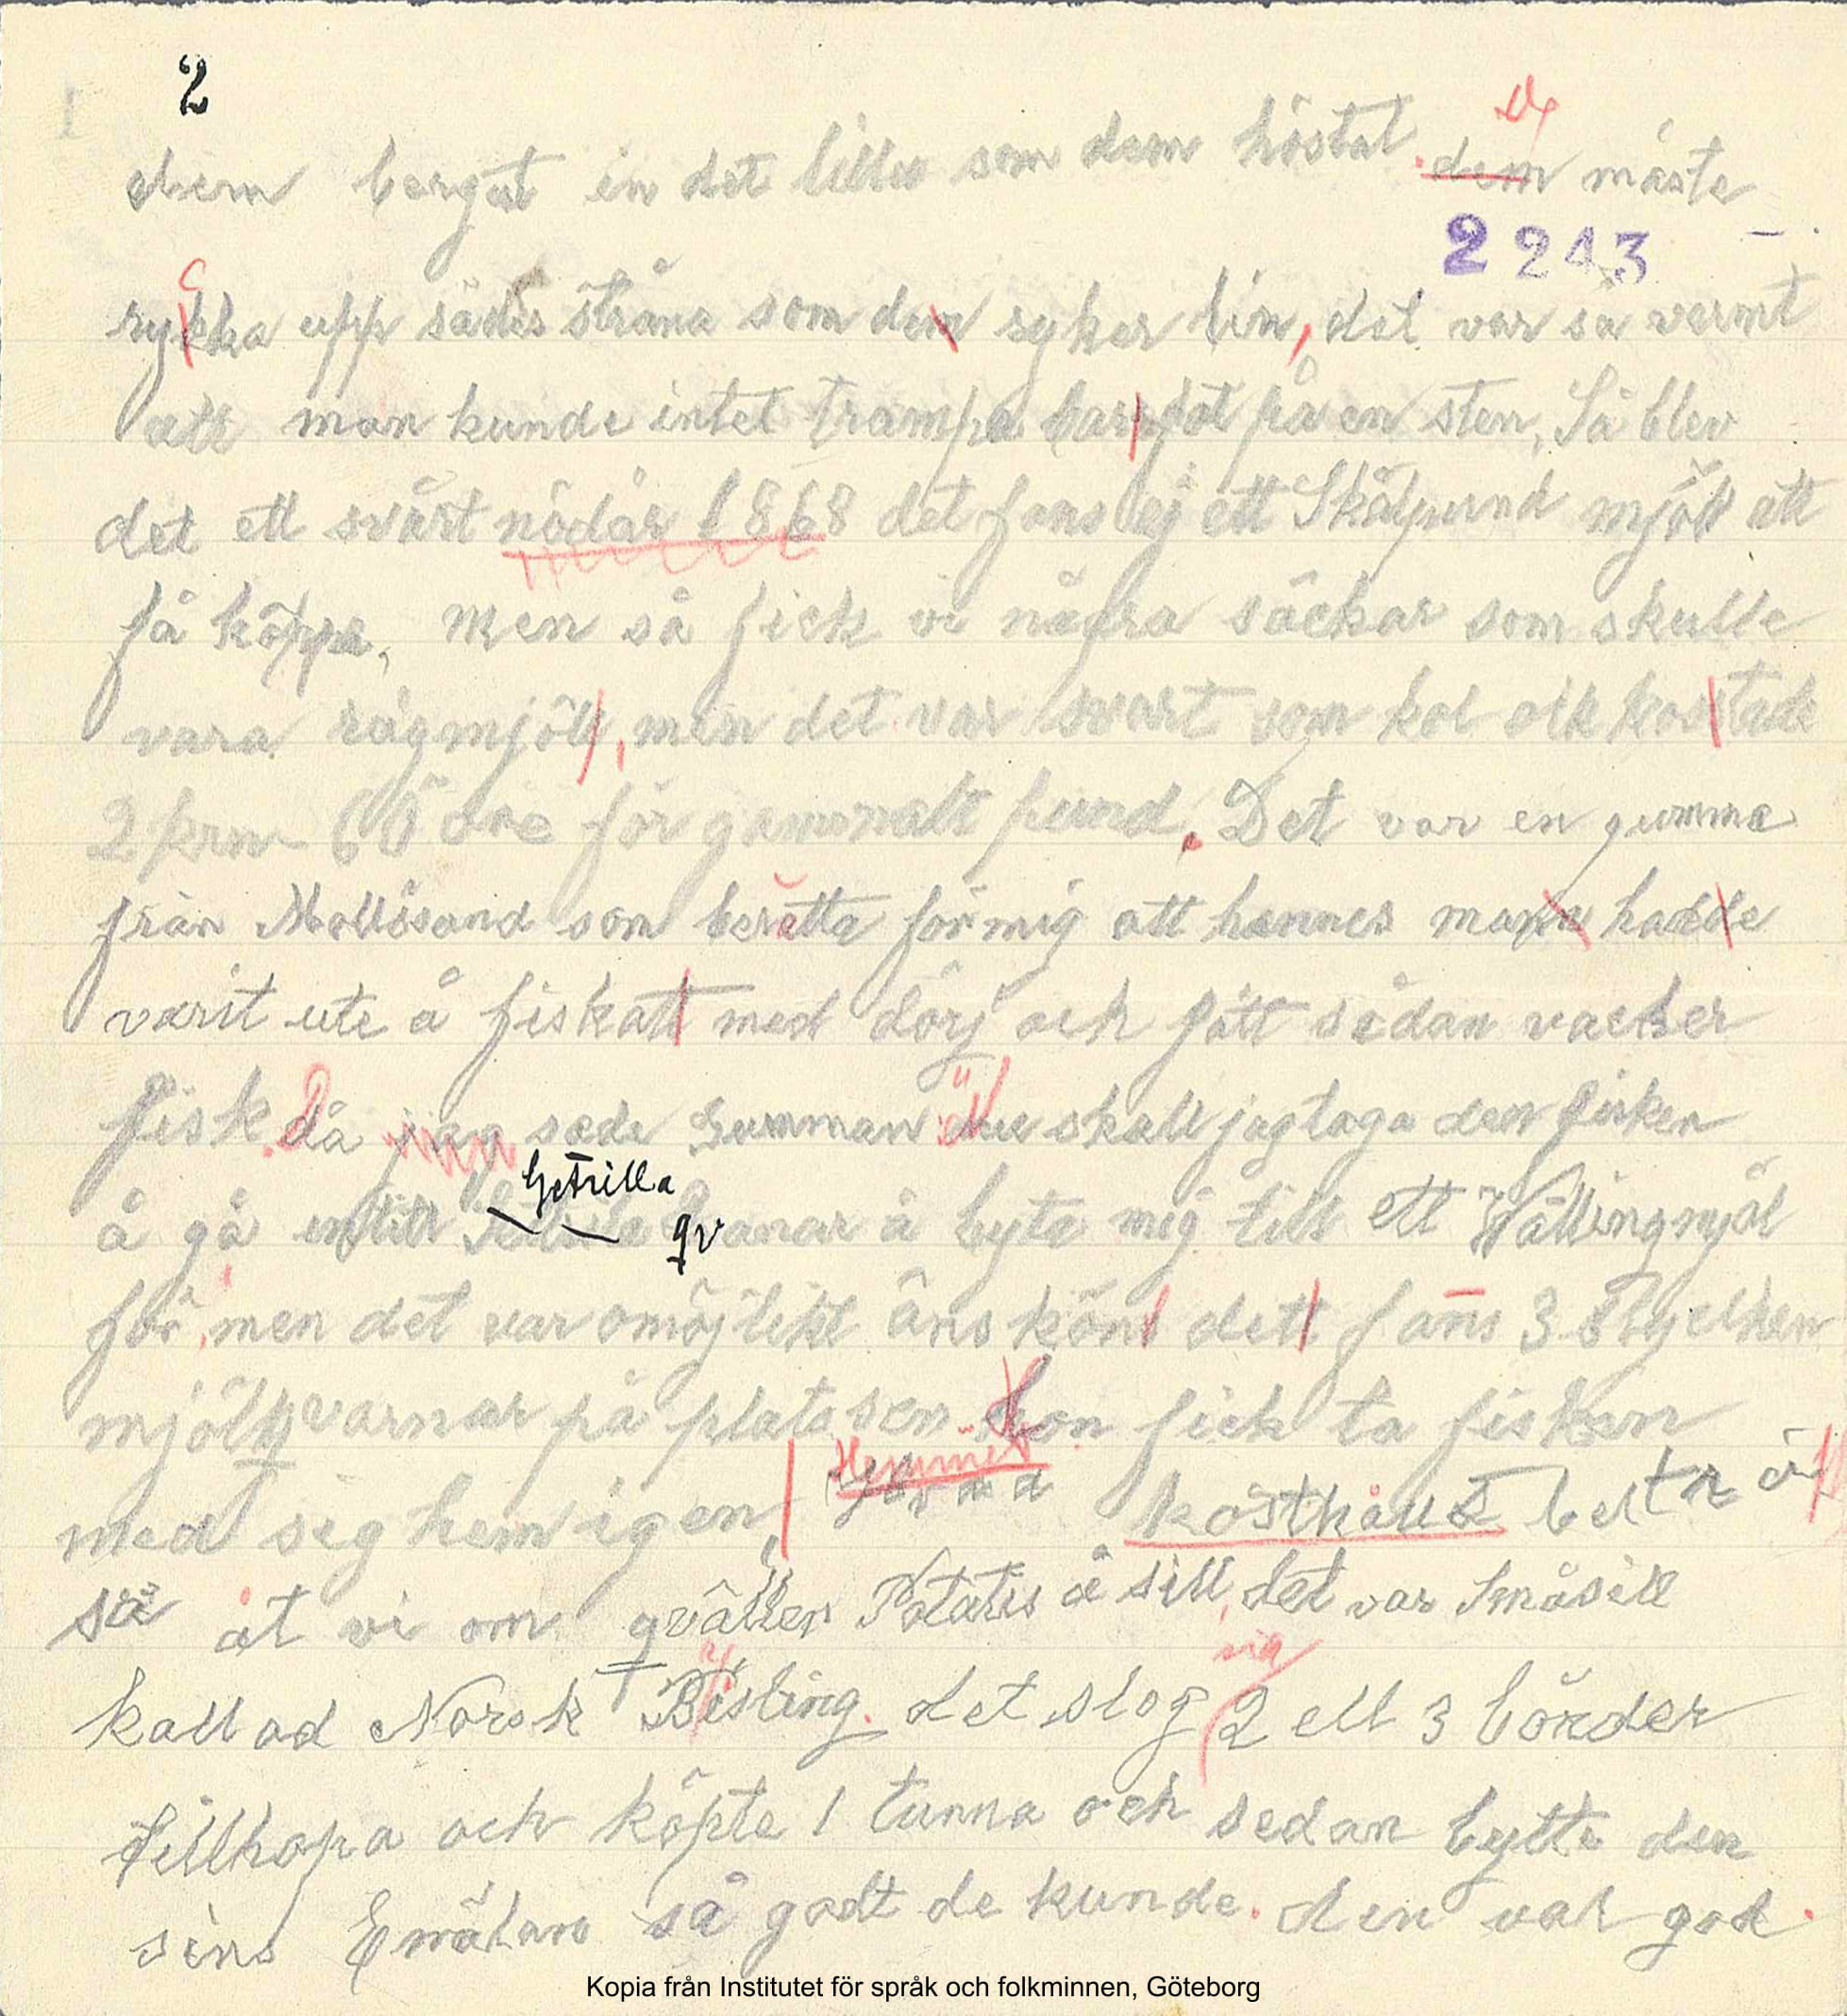 2
dem bergat in det lilla som dem höstat. dem måste
De
2243
rykka upp sädes stråna som dem ryker lin, det var så vermt
att man kunde intet trampa barfot på en sten, Så blev
det ett svårt nödår 1868 det fans ej ett Skålpund mjöl att
få köppa, men så fick vi några säckar som skulle
vara rågmjöll, men det var svart som kol ock kostade
2 krn 60 öre för gammalt pund. Det var en gumma
från Mollösund som berätta för mig att hennes mann hadde
varit ute å fiskatt med dörj och fått sådan vacker
fisk. då jag sade Gumman nu skall jag taga den fisken
Getrilla
å gå in till qvanar å byta mig till ett Vällingmjöl
för, men det var omöjlikt äns könt dett fans 3 Stycken
mjölkvarnar på platsen hon fick ta fisken
med sig hem igen
Hemmet
kosthållet
så åt vi om qvällen Potatis å sill, det var Småsill
kallad Norsk Bisling. det slog 2 ell 3 bönder
sig
tillhopa och köpte 1 tunna och sedan bytte den
sins Emälan så godt de kunde. den var god.
Kopia från Institutet för språk och folkminnen, Göteborg